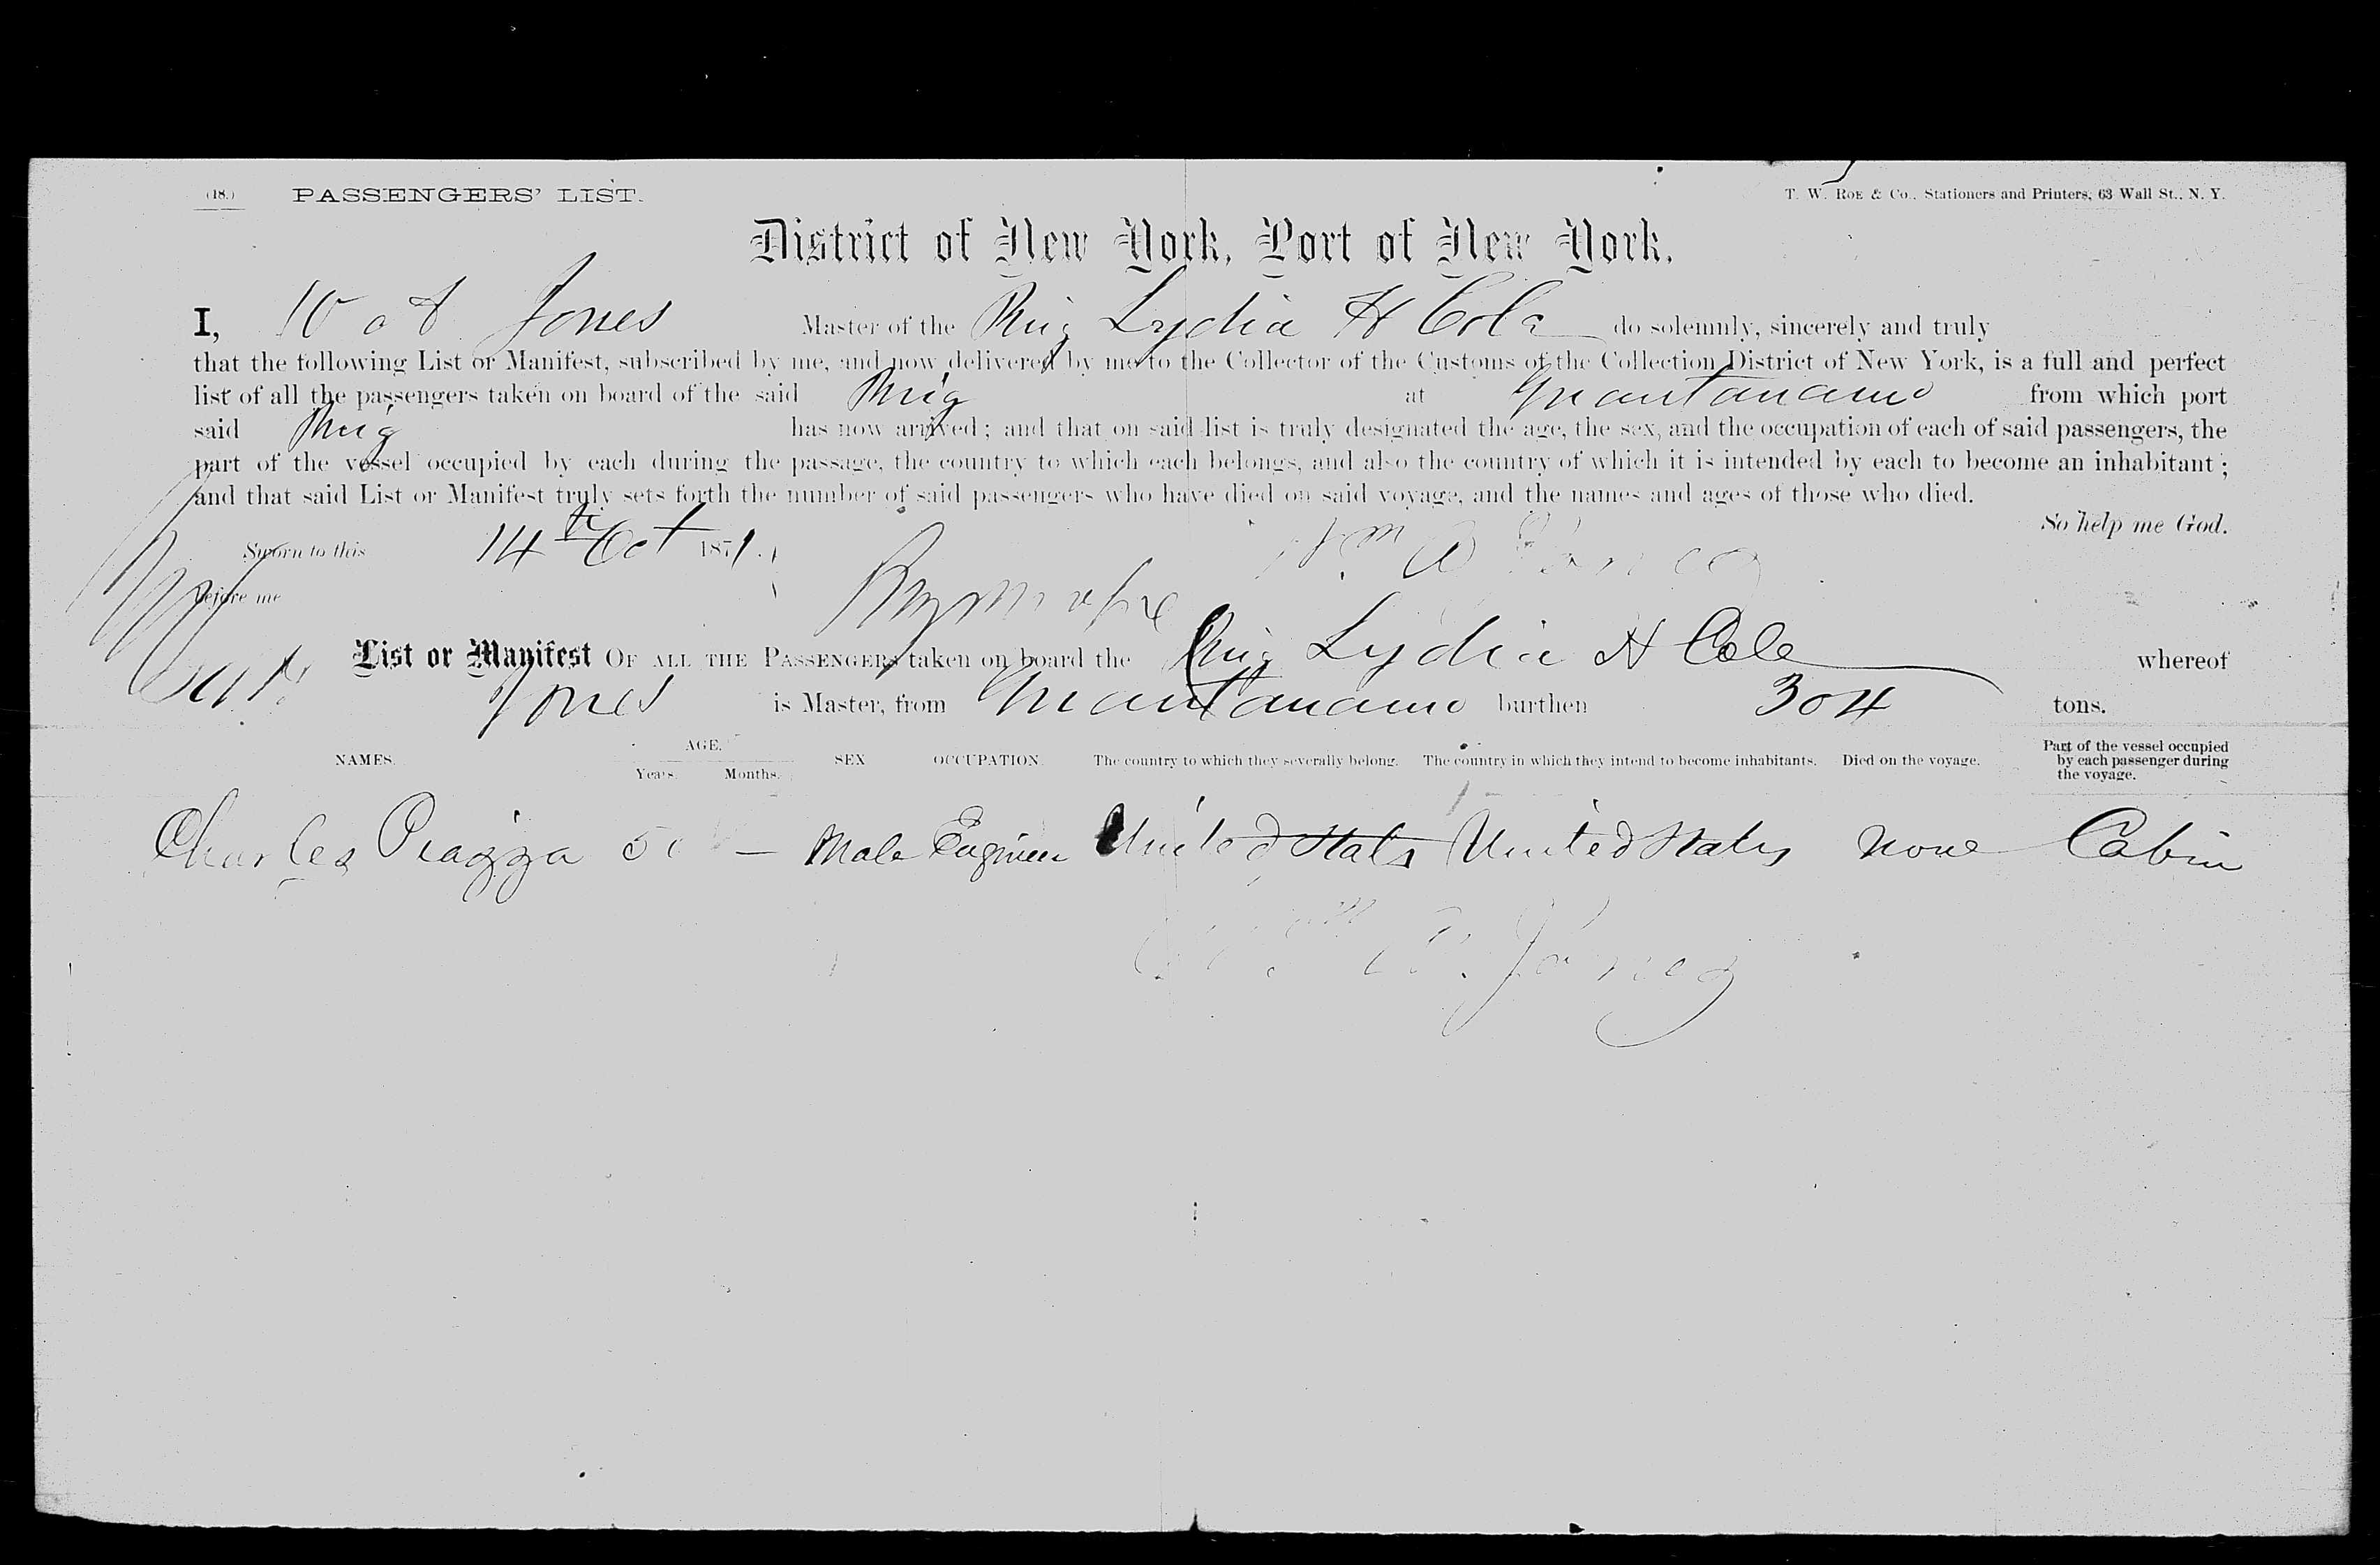 (18.) PASSENGERS' LIST. T. W. ROE & Co., Stationers and Printers, 63 Wall St., N. Y.
District of New York, Port of New York.
I, Jones Master of the Brig Lydia H Cole do solemnly, sincerely and truly
that the following List or Manifest, subscribed by me, and now delivered by me to the Collector of the Customs of the Collection District of New York, is a full and perfect
list of all the passengers taken on board of the said Brig at from which port
said Brig has now arrived; and that on said list is truly designated the age, the sex, and the occupation of each of said passengers, the
part of the vessel occupied by each during the passage, the country to which each belongs, and also the country of which it is intended by each to become an inhabitant;
and that said List or Manifest truly sets forth the number of said passengers who have died on said voyage, and the names and ages of those who died.
So help me God.
Sworn to this 14th Oct 1871.
Wm A Jones
Before me
List or Manifest OF ALL THE PASSENGERS taken on board the Brig Lydia H Cole whereof
Jones is Master, from burthen 304 tons.
NAMES. AGE. Years. Months. SEX OCCUPATION. The country to which they severally belong. The country in which they intend to become inhabitants. Died on the voyage. Part of the vessel occupied by each passenger during the voyage.
Charles Piazza 50 — Male Engineer United States United States None Cabin
Wm A. Jones